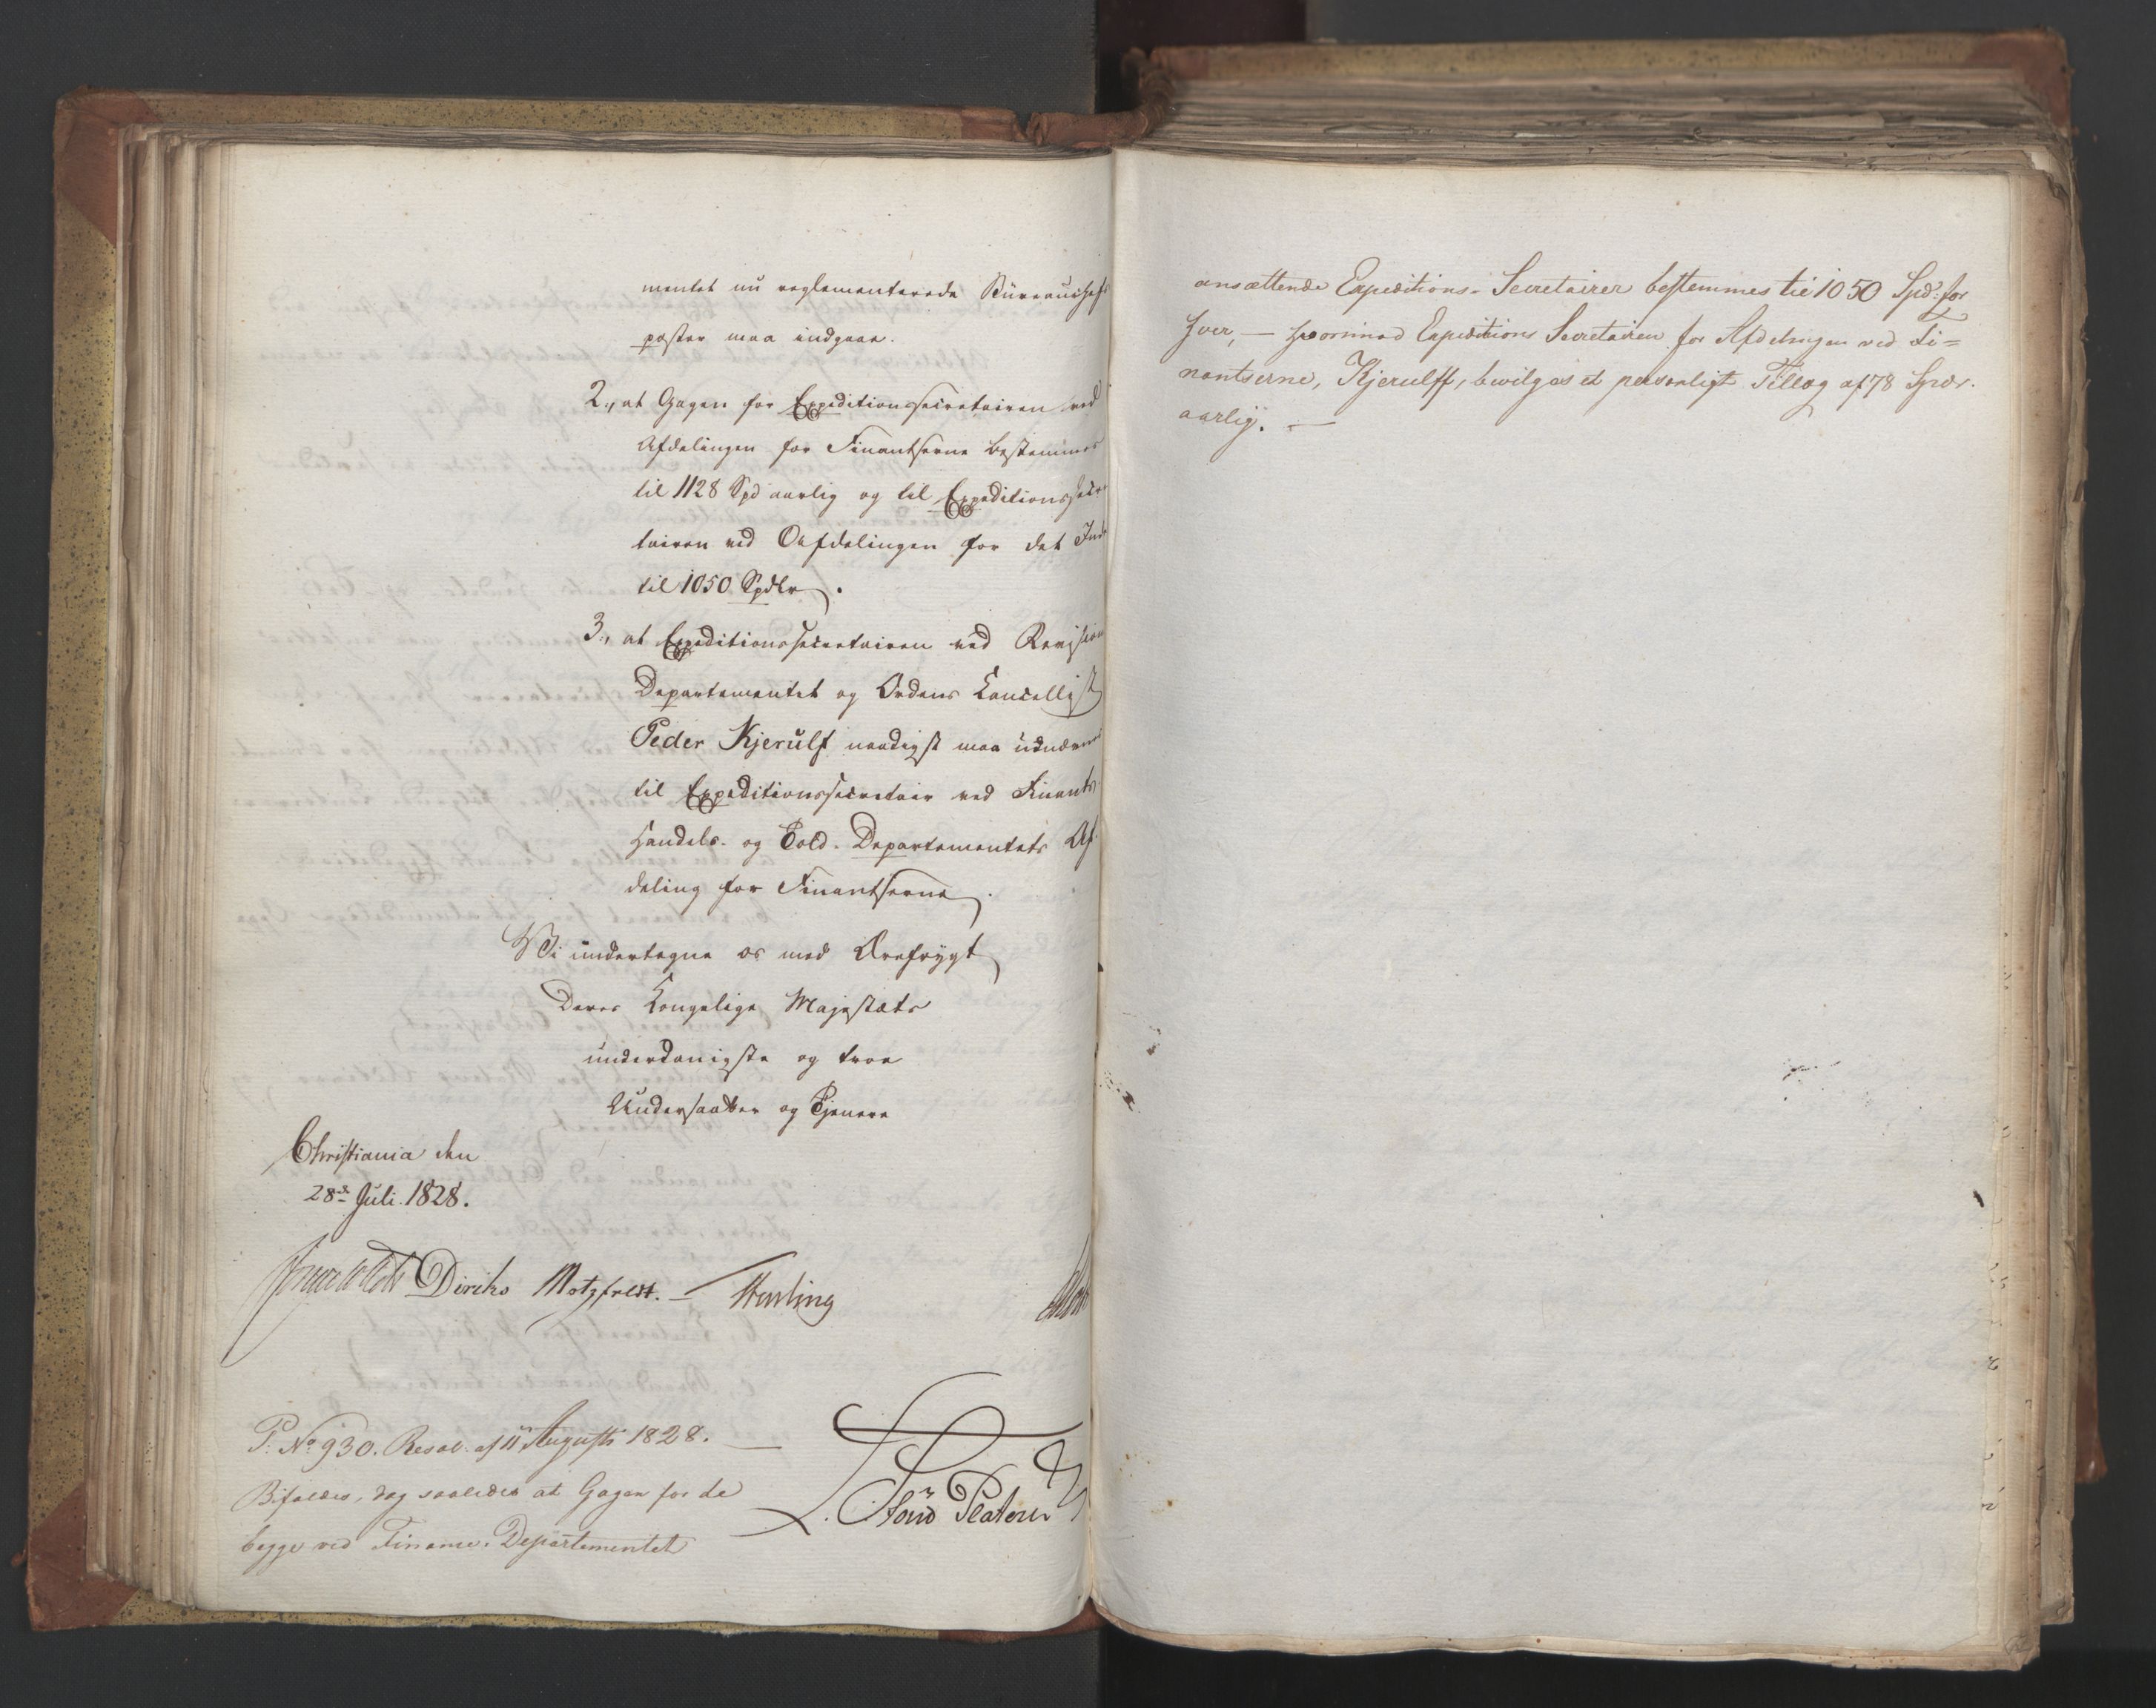 mentet nu reglementerede Büreauchefs
poster maa indgaae.
2., at Gagen for Expeditionssecretairen ved
Afdelingen for Finantserne bestemmes
til 1128 Spd aarlig og til Expeditionssecre
tairen ved Afdelingen for det Indr
til 1050 Spdlr.
3., at Expeditionssecretairen ved Revisions
Departementet og Ordens Cancellist
Peder Kjerulf naadigst maa üdnævnes
til Expeditionssecretair ved Finants-
Handels- og Told-Departementets Af-
deling for Finantserne.
Vi undertegne os med Ærefrygt
Deres Kongelige Majestæts
ünderdanigste og troe
Undersaatter og Tjenere
Christiania den
28de Juli 1828.
Diriks Motzfeldt. —
P: No 930. Resol. af 11 Augusti 1828. —
Bifaldes, dog saaledes at Gagen for de
begge ved Finance-Departementet
L. von Platen
ansættende Expeditions-Secretairer bestemmes til 1050 Spd: for
hver, — hvorimod Expeditions Secretairen for Afdelingen ved Fi=
nantserne, Kjerulff, bevilges et personligt Tillæg af 78 Spdr.
aarlig. —